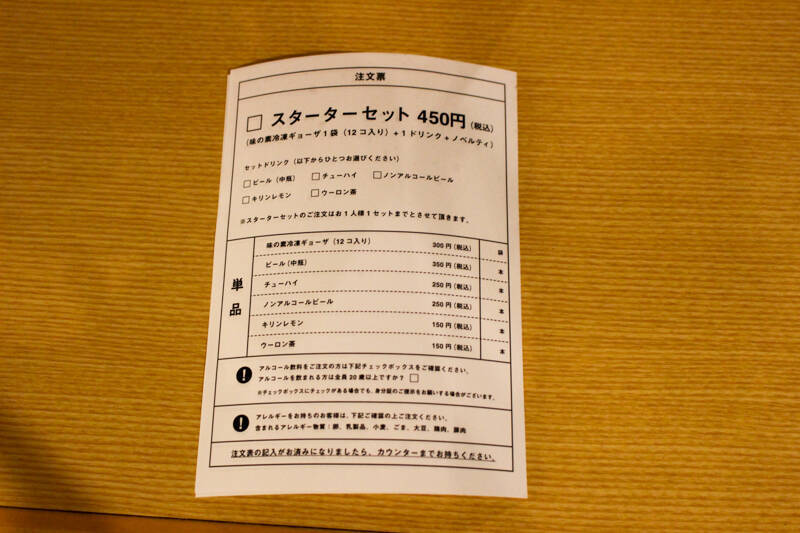 注文票
□ スターターセット 450円(税込)
(味の素冷凍ギョーザ1袋(12コ入り)+1ドリンク+ノベルティ)
セットドリンク(以下からひとつお選びください)
□ビール(中瓶) □チューハイ □ノンアルコールビール
□キリンレモン □ウーロン茶
※スターターセットのご注文はお1人様1セットまでとさせて頂きます。
単品
味の素冷凍ギョーザ(12コ入り) 300円(税込) 袋
ビール(中瓶) 350円(税込) 本
チューハイ 250円(税込) 本
ノンアルコールビール 250円(税込) 本
キリンレモン 150円(税込) 本
ウーロン茶 150円(税込) 本
アルコール飲料をご注文の方は下記チェックボックスをご確認ください。
アルコールを飲まれる方は全員20歳以上ですか? □
※チェックボックスにチェックがある場合でも、身分証のご提示をお願いする場合がございます。
アレルギーをお持ちのお客様は、下記ご確認の上ご注文ください。
含まれるアレルギー物質:卵、乳製品、小麦、ごま、大豆、鶏肉、豚肉
注文表の記入がお済みになりましたら、カウンターまでお持ちください。